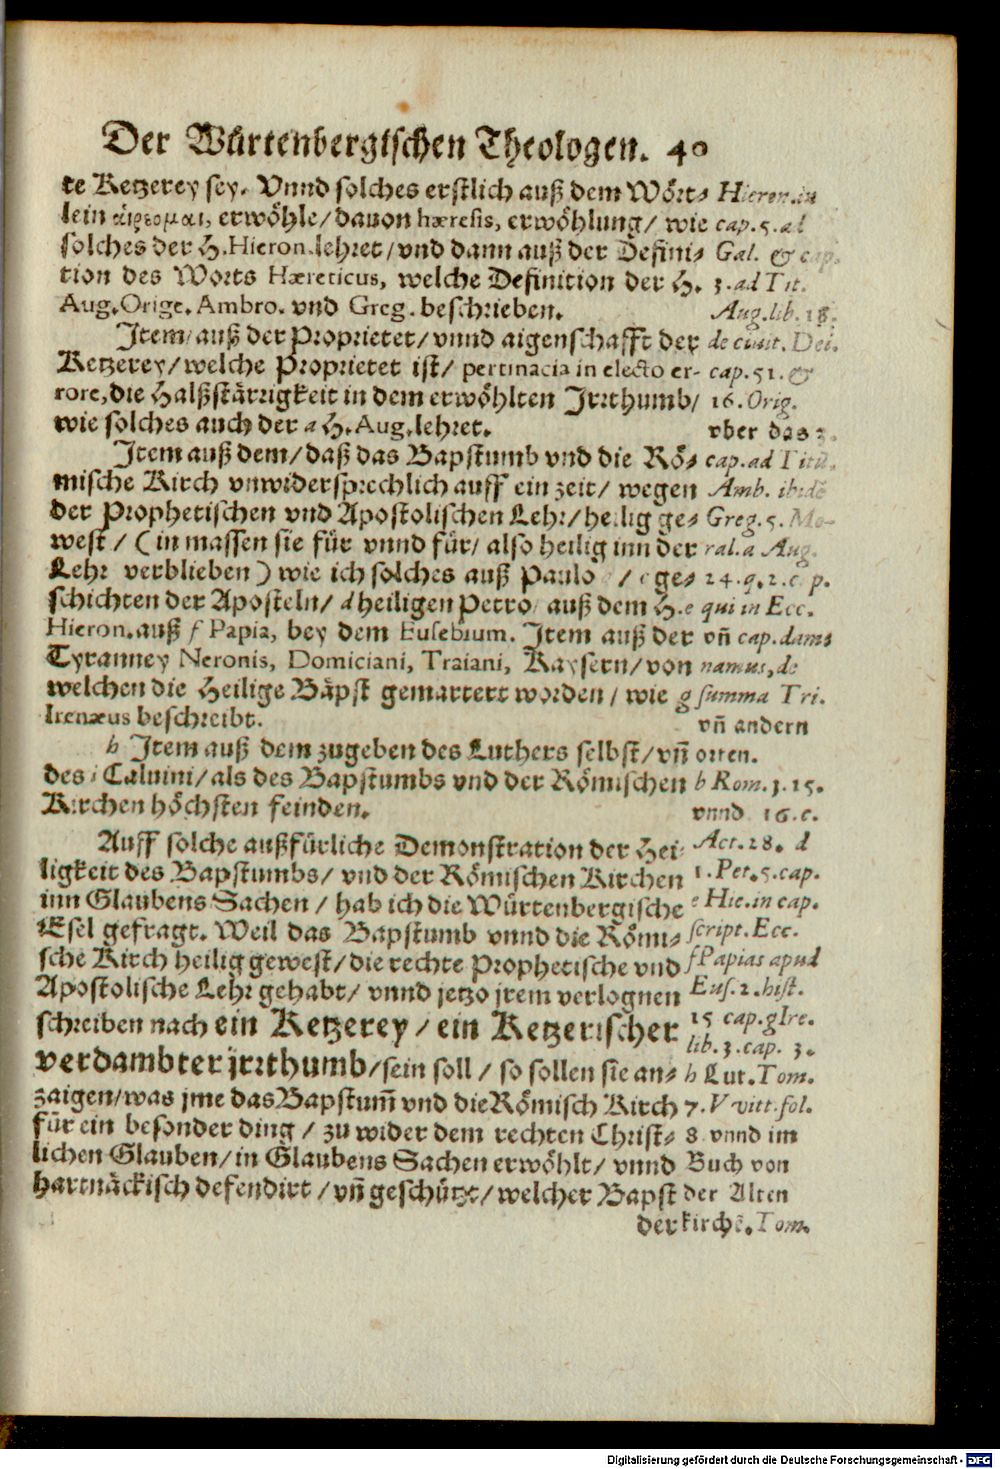 Der Würtenbergischen Theologen. 40
te Ketzerey sey. Vnnd solches erstlich auß dem Wört⸗
lein αἱρέομαι, erwöhle/ dauon hæresis, erwöhlung/ wie
solches der H. Hieron. lehret/ vnd dann auß der Defini⸗
tion des Worts Hæreticus, welche Definition der H.
Aug. Orige. Ambro. vnd Greg. beschrieben.
Item/ auß der Proprietet/ vnnd aigenschafft der
Ketzerey/ welche Proprietet ist/ pertinacia in electo er-
rore, die Halßstärrigkeit in dem erwöhlten Jrrthumb/
wie solches auch der a H. Aug. lehret.
Item auß dem/ daß das Bapstumb vnd die Rö⸗
mische Kirch vnwidersprechlich auff ein zeit/ wegen
der Prophetischen vnd Apostolischen Lehr/ heilig ge⸗
west/ (in massen sie für vnnd für/ also heilig inn der
Lehr verblieben) wie ich solches auß Paulo / c ge⸗
schichten der Aposteln/ d heiligen Petro/ auß dem H.
Hieron. auß f Papia, bey dem Eusebium. Item auß der
Tyranney Neronis, Domiciani, Traiani, Kaysern/ von
welchen die Heilige Bäpst gemartert worden/ wie g
Irenæus beschreibt.
h Item auß dem zugeben des Luthers selbst/ vñ
des i Caluini/ als des Bapstumbs vnd der Römischen
Kirchen höchsten feinden.
Auff solche außfürliche Demonstration der Hei⸗
ligkeit des Bapstumbs/ vnd der Römischen Kirchen
inn Glaubens Sachen/ hab ich die Würtenbergische
Esel gefragt. Weil das Bapstumb vnnd die Römi⸗
sche Kirch heilig gewest/ die rechte Prophetische vnd
Apostolische Lehr gehabt/ vnnd jetzo jrem verlognen
schreiben nach ein Ketzerey/ ein Ketzerischer
verdambter jrrthumb/ sein soll/ so sollen sie an⸗
zaigen/ was jme das Bapstum̃ vnd die Römisch Kirch
für ein besonder ding/ zu wider dem rechten Christ⸗
lichen Glauben/ in Glaubens Sachen erwöhlt/ vnnd
hartnäckisch defendirt/ vñ geschützt/ welcher Bapst
der
Hieron. in
cap. 5. ad
Gal. & cap.
3. ad Tit.
Aug. lib. 18.
de ciuit. Dei.
cap. 51. &
16. Orig.
vber das 3.
cap. ad Titū.
Amb. ibidē
Greg. 5. Mo-
ral. a Aug.
24. q. 2. c p.
e qui in Ecc.
vñ cap. dam⸗
namus, de
summa Tri.
vñ andern
orten.
b Rom. 1. 15.
vnnd 16. c.
Act. 28. d
1. Pet. 5. cap.
e Hie. in cap.
script. Ecc.
f Papias apud
Eus. 2. hist.
15 cap. g Ire.
lib. 3. cap. 3.
h Lut. Tom.
7. Vvitt. fol.
8 vnnd im
Buch von
der Alten
kirchē. Tom.
Digitalisierung gefördert durch die Deutsche Forschungsgemeinschaft - DFG